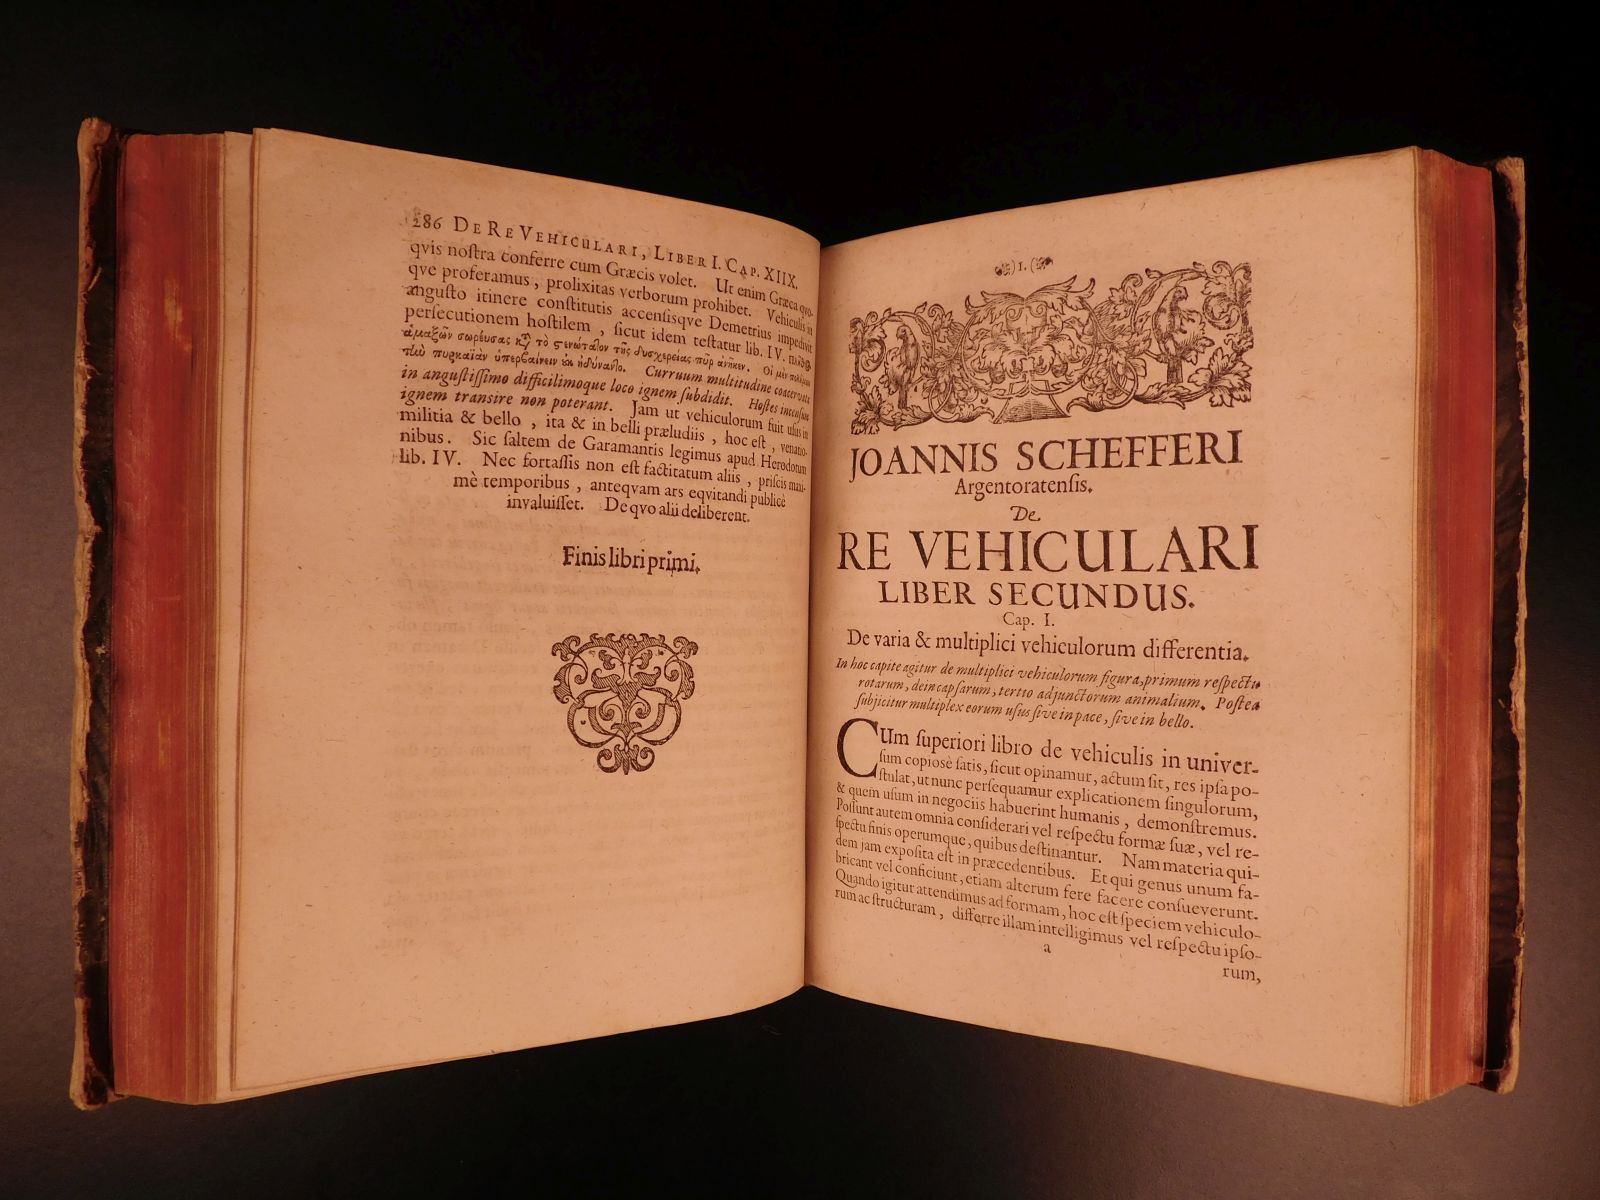 286 DE RE VEHICULARI, LIBER I. CAP. XIIX.
qvis nostra conferre cum Græcis volet. Ut enim Græca quo-
qve proferamus, prolixitas verborum prohibet. Vehiculis in
angusto itinere constitutis accensisqve Demetrius impedivit
persecutionem hostilem, sicut idem testatur lib. IV.
ἁμαξῶν σωρεύσας τὸ στενώτατον τῆς δυσχερείας πῦρ ἀνῆκεν. Οἱ μὲν
πυρκαϊὰν ὑπερβαίνειν ἐκ ἠδύναντο. Curruum multitudine coacervata
in angustissimo difficilimoque loco ignem subdidit. Hostes
ignem transire non poterant. Jam ut vehiculorum fuit usus in
militia & bello, ita & in belli præludiis, hoc est, venatio-
nibus. Sic saltem de Garamantis legimus apud Herodotum
lib. IV. Nec fortassis non est factitatum aliis, priscis maxi-
mè temporibus, anteqvam ars eqvitandi publicè
invaluisset. De qvo alii deliberent.
Finis libri primi.
) 1. (
JOANNIS SCHEFFERI
Argentoratensis.
De
RE VEHICULARI
LIBER SECUNDUS.
Cap. I.
De varia & multiplici vehiculorum differentia.
In hoc capite agitur de multiplici vehiculorum figura, primum respectu
rotarum, dein capsarum, tertio adjunctorum animalium. Postea
subjicitur multiplex eorum usus sive in pace, sive in bello.
CUm superiori libro de vehiculis in univer-
sum copiosè satis, sicut opinamur, actum sit, res ipsa po-
stulat, ut nunc persequamur explicationem singulorum,
& quem usum in negociis habuerint humanis, demonstremus.
Possunt autem omnia considerari vel respectu formæ suæ, vel re-
spectu finis operumque, quibus destinantur. Nam materia qui-
dem jam exposita est in præcedentibus. Et qui genus unum fa-
bricant vel conficiunt, etiam alterum fere facere consueverunt.
Quando igitur attendimus ad formam, hoc est speciem vehiculo-
rum ac structuram, differre illam intelligimus vel respectu ipso-
a
rum,